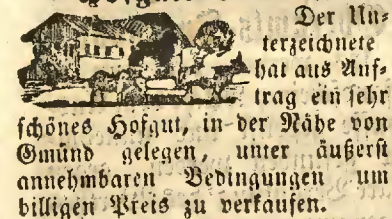 Der Un⸗
terzeichnete
hat aus Auf⸗
trag ein sehr
schönes Hofgut, in der Nähe von
Gmünd gelegen, unter äußerst
annehmbaren Bedingungen um
billigen Preis zu verkaufen.